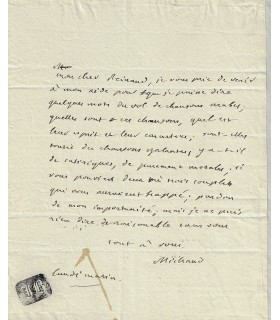 mon cher Reinaud, je vous prie de venir
à mon aide pour que je puisse dire
quelques mots du vol de chansons arabes,
quelles sont ces chansons, quel est
leur esprit et leur caractère, sont-elles
des chansons galantes, y a-t-il
de satiriques, de purement morales, si
vous pouviez deux ou trois couplets
qui vous auraient frappé, pardon
de mon importunité, mais je ne puis
rien dire de raisonnable sans vous
tout à vous
Michaud
lundi matin